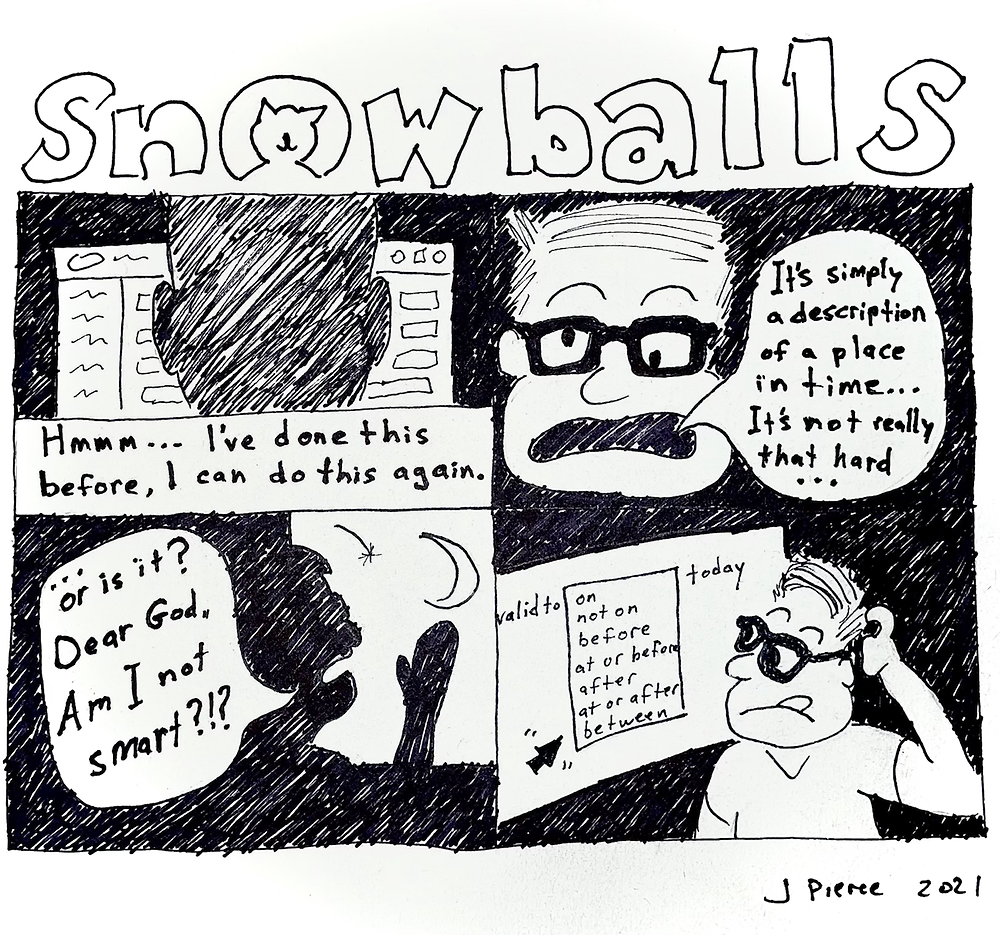 Snowballs
Hmmm... I've done this
before, I can do this again.
It's simply
a description
of a place
in time...
It's not really
that hard
...
...or is it?
Dear God..
Am I not
smart?!?
valid to
on
not on
before
at or before
after
at or after
between
today
J Pierce 2021